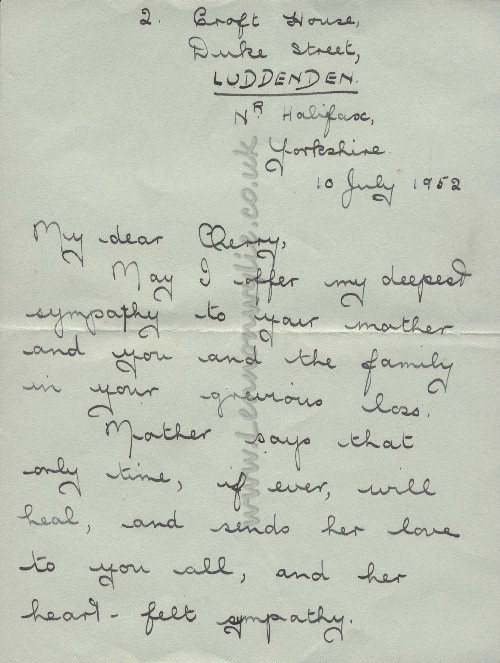 2. Croft House,
Duke Street,
LUDDENDEN.
Nr Halifax,
Yorkshire
10 July 1952
My dear Cherry,
May I offer my deepest
sympathy to your mother
and you and the family
in your grevious loss.
Mother says that
only time, if ever, will
heal, and sends her love
to you all, and her
heart-felt sympathy.